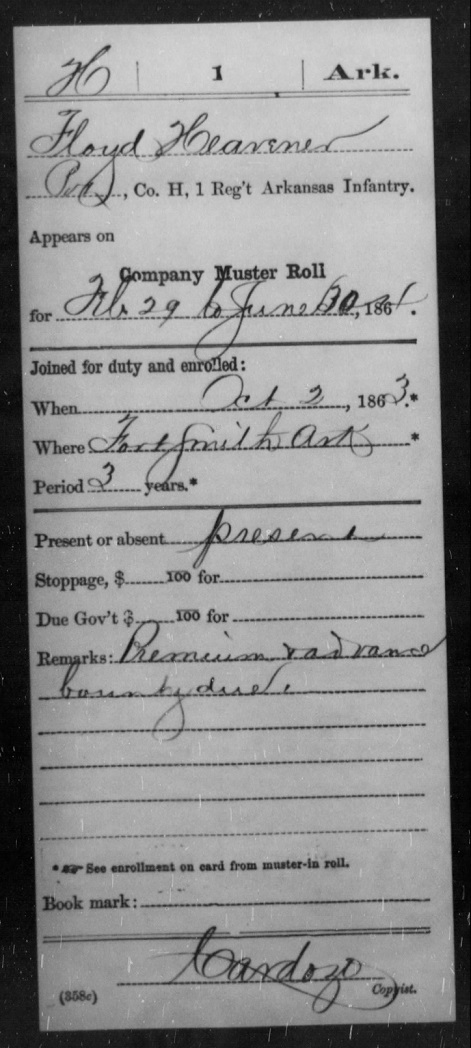 H | 1 | Ark.
Floyd Heavener
Pvt, Co. H, 1 Reg't Arkansas Infantry.
Appears on
Company Muster Roll
for Feb 29 to June 30, 1864.
Joined for duty and enrolled:
When Oct 2, 1863.*
Where Fort Smith Ark *
Period 3 years.*
Present or absent present
Stoppage, $ 100 for
Due Gov't $ 100 for
Remarks: Premium & advance
bounty due.
* ☞ See enrollment on card from muster-in roll.
Book mark:
Cardozo
(358c) Copyist.